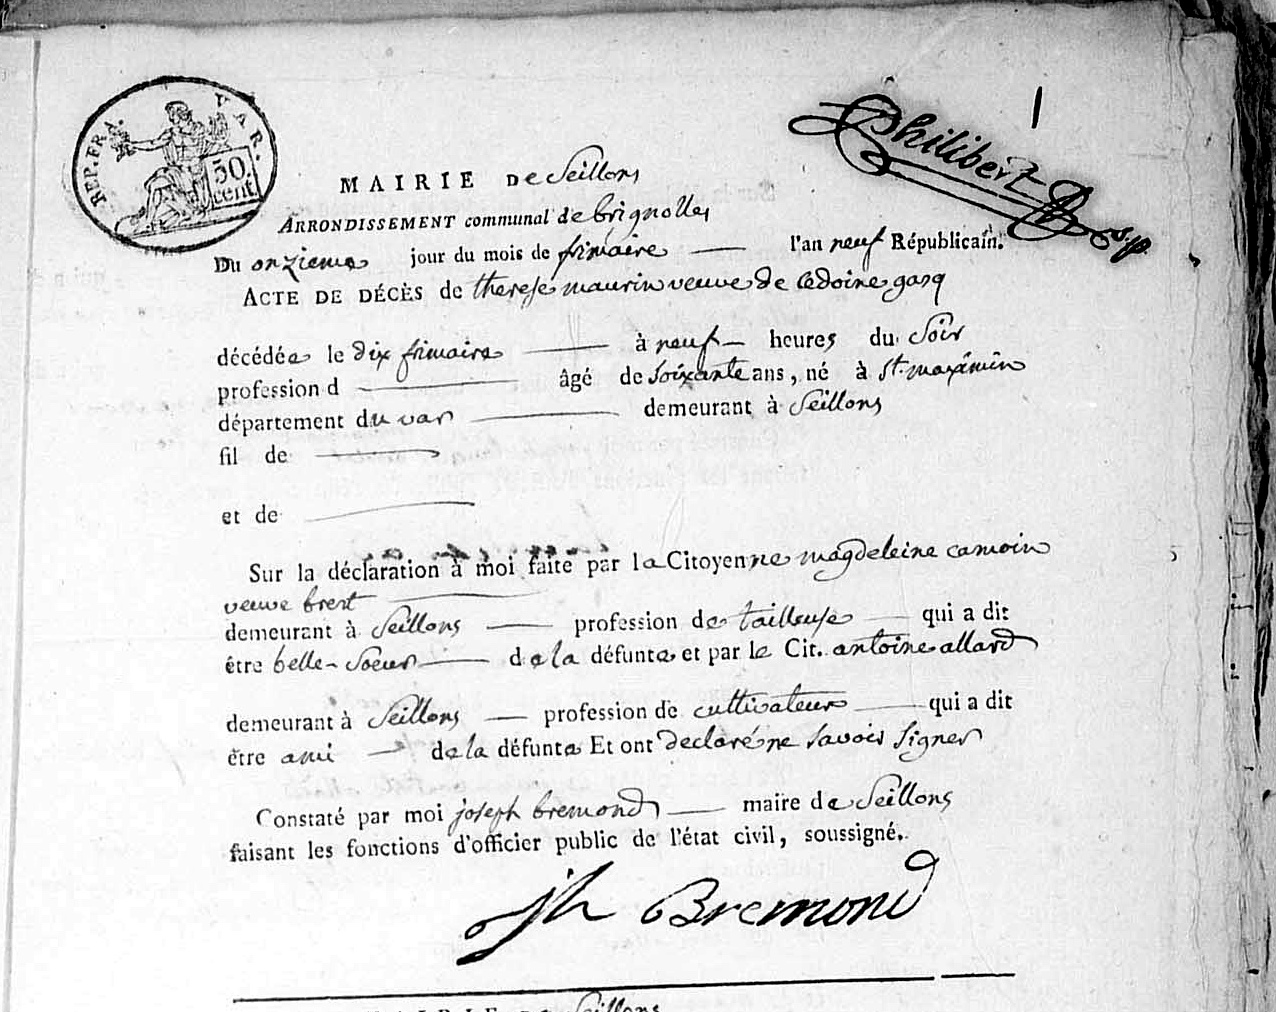 REP. FRA. VAR.
50
cent.
1
Philibert
MAIRIE De Seillons
ARRONDISSEMENT communal de brignolles
Du onzieme jour du mois de frimaire — l'an neuf Républicain.
ACTE DE DÉCÈS de therese maurin veuve de gasq
décédée le dix frimaire — à neuf — heures du Soir
profession d — âgé de Soixante ans, né à St. maximin
département du var — demeurant à Seillons
fil de —
et de —
Sur la déclaration à moi faite par la Citoyenne magdeleine camoin
veuve brest —
demeurant à Seillons — profession de tailleuse — qui a dit
être belle-Soeur — de la défunte et par le Cit. antoine allard
demeurant à Seillons — profession de cultivateur — qui a dit
être ami — de la défunte Et ont declaré ne Savoir Signer
Constaté par moi joseph bremond — maire de Seillons
faisant les fonctions d'officier public de l'état civil, soussigné.
jh Bremond
MAIRIE De Seillons